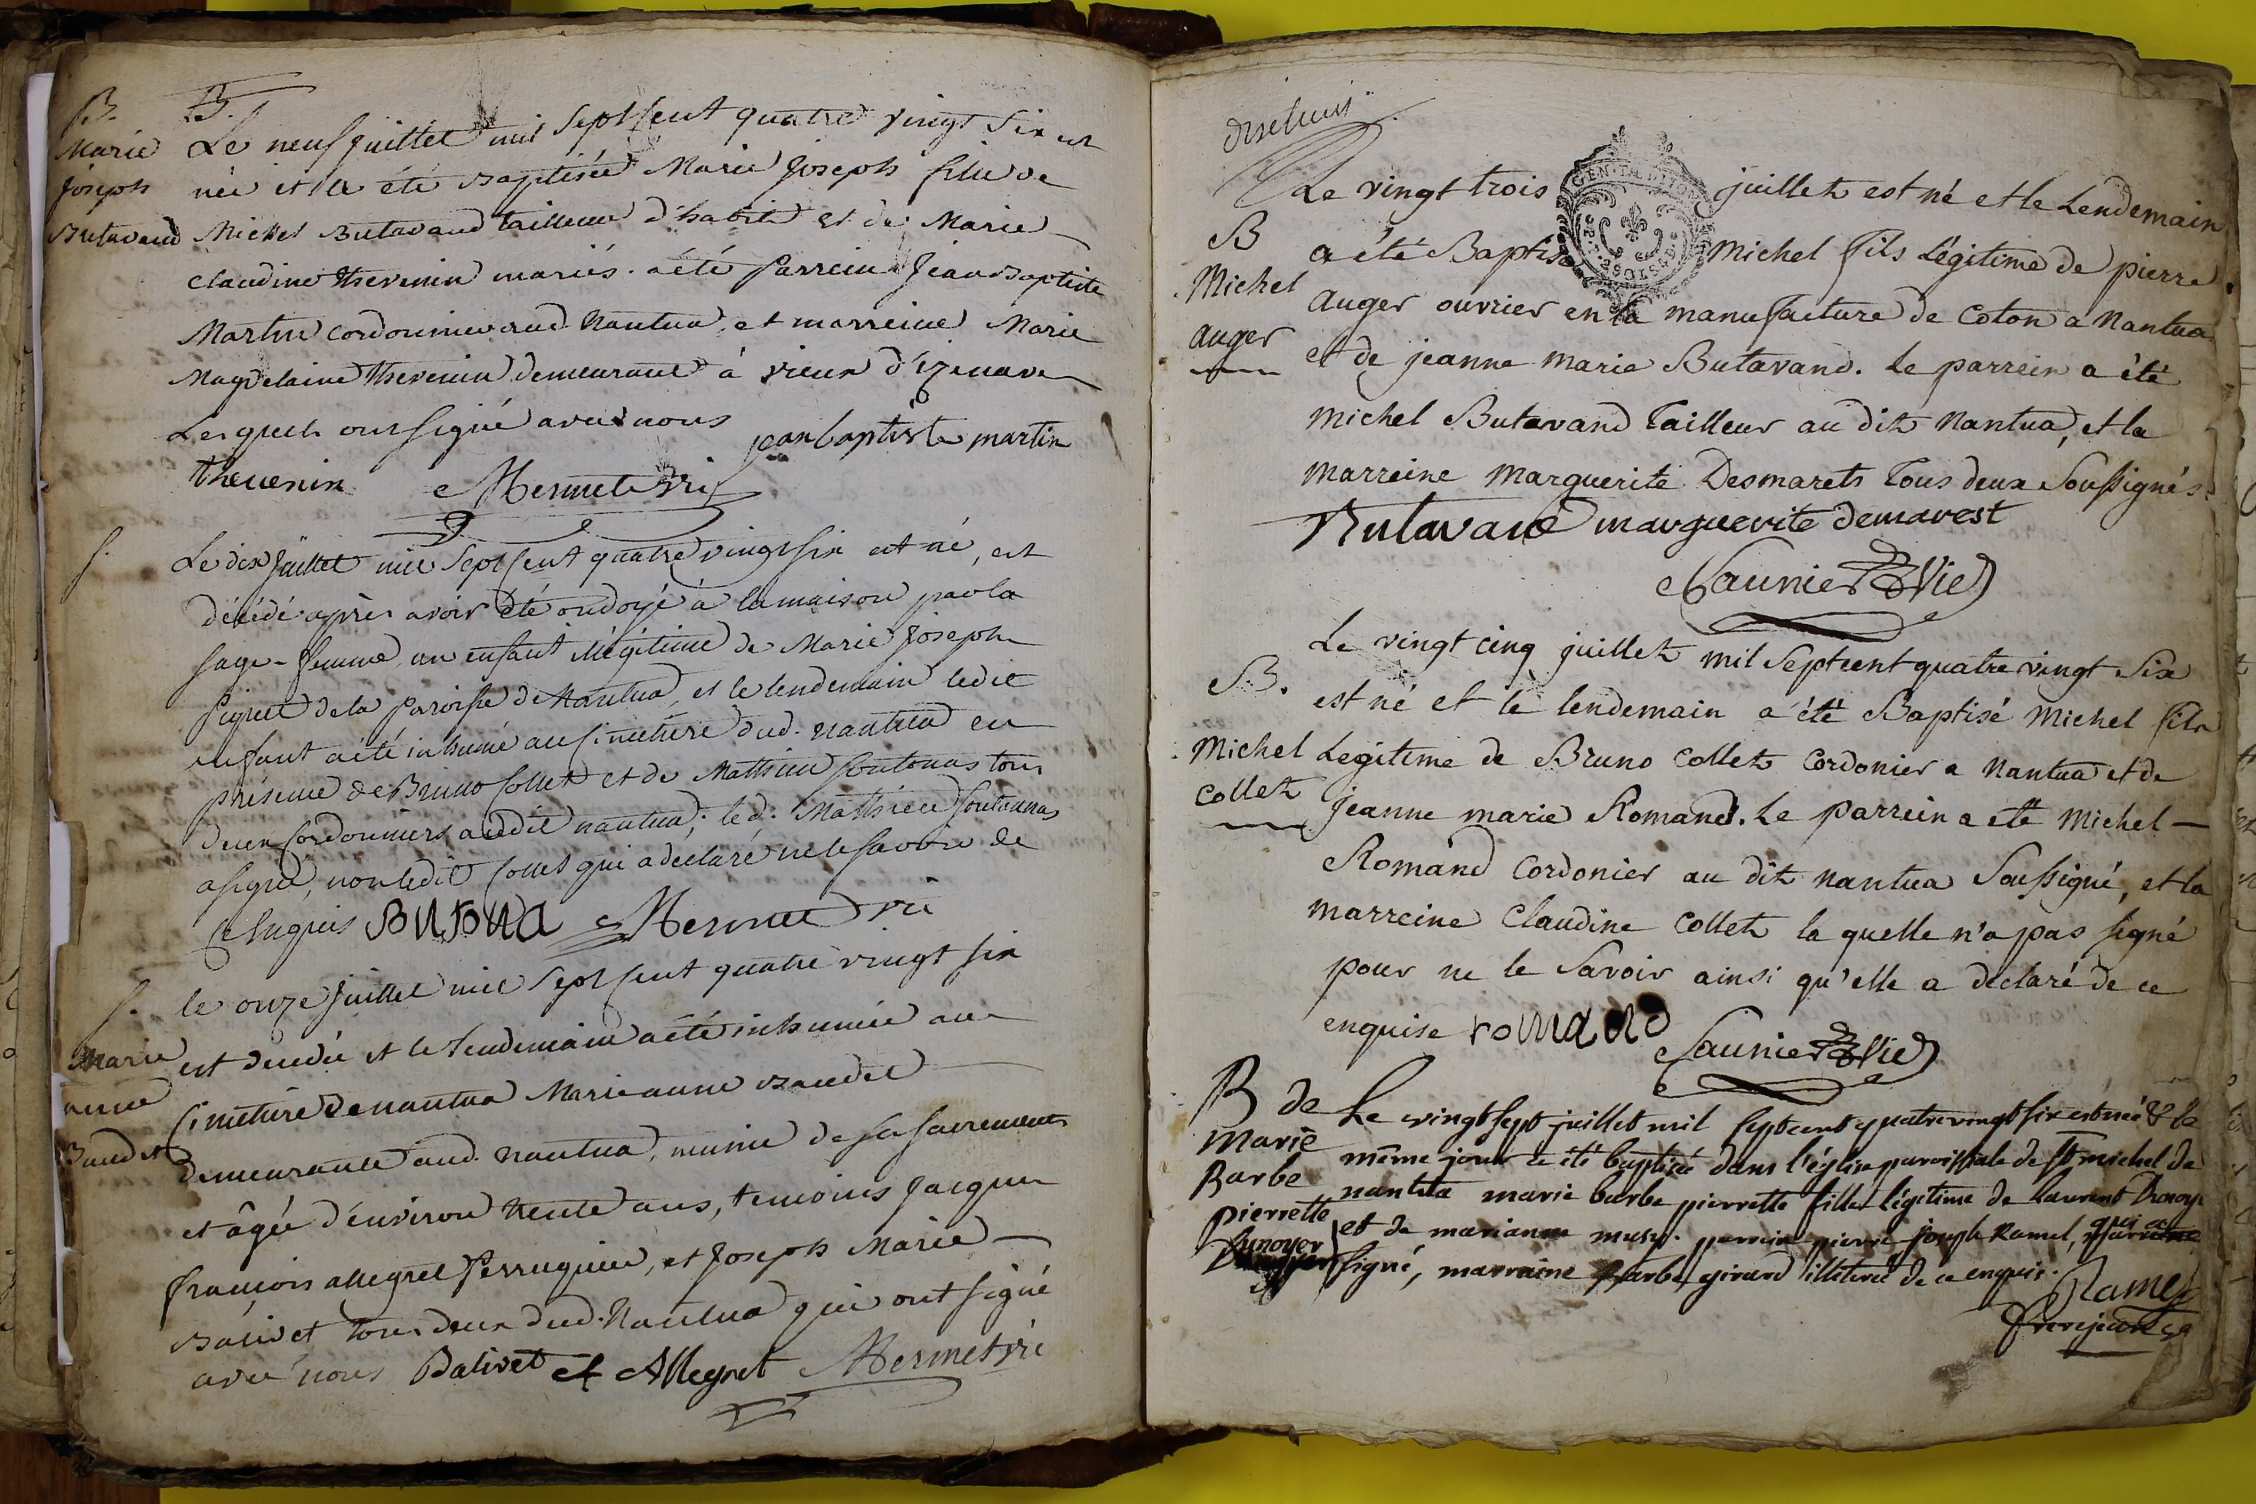 B.
Marie
Joseph
Butavand
B.
Le neuf juillet mil sept cent quatre vingt six est
née et a été baptisée Marie Joseph fille de
Michel Butavand tailleur d'habit et de Marie
Claudine Thevenin mariés. a été parrein Jean Baptiste
Martin cordonnier aud. Nantua, et marreine Marie
Magdelaine Thevenin demeurant à vieux d'izenave
Lesquels ont signé avec nous
jean baptiste martin
thevenin Mermet vic
S.
Le dix juillet mil sept cent quatre vingt six est né, est
décédé après avoir été ondoyé à la maison par la
sage-femme, un enfant illégitime de Marie Joseph
de la paroisse de Nantua, et le lendemain ledit
enfant a été inhumé au cimetière dud. nantua en
présence de Bruno Collet et de Mathieu tous
deux cordonniers audit nantua; led. Mathieu
a signé, non ledit Collet qui a déclaré ne le savoir de
ce enquis Mermet vic
S.
Marie
anne
Baudet
le onze juillet mil sept cent quatre vingt six
est décédée et le lendemain a été inhumée au
cimetière de nantua Marie anne Baudet
demeurante aud. nantua, munie de ses sacrements
et âgée d'environ trente ans, temoins Jacques
françois allegret perruquier, et Joseph Marie
Balivet tous deux dud. Nantua qui ont signé
avec nous Balivet et Allegret Mermet vic
Le vingt trois juillet est né et le Lendemain
B
Michel
auger
a été Baptisé Michel fils Légitime de pierre
auger ouvrier en la manufacture de Coton a Nantua
et de jeanne marie Butavand. Le parrein a été
Michel Butavand Tailleur au dit Nantua, et la
marreine marguerite Desmarets Tous deux Soussignés.
Butavand marguerite demarest
Saunier Vic
B.
Michel
Collet
Le vingt cinq juillet mil Septcent quatre vingt Six
est né et le lendemain a été Baptisé Michel fils
Legitime de Bruno Collet Cordonier a Nantua et de
jeanne marie Romand. Le parrein a été Michel
Romand Cordonier au dit Nantua Soussigné, et la
marreine Claudine Collet la quelle n'a pas signé
pour ne le Savoir ainsi qu'elle a déclaré de ce
enquise romand
Saunier Vic
B de
Marie
Barbe
pierrette
Dunoyer
Le vingt sept juillet mil Septcent quatrevingt six est née & le
même jour a été baptisée dans l'église paroissiale de St michel de
nantua marie barbe pierrette fille légitime de laurent Dunoyer
et de marianne parrein pierre joseph Ramel, qui a
signé, marraine barbe girard illiterée de ce enquis.
Ramel